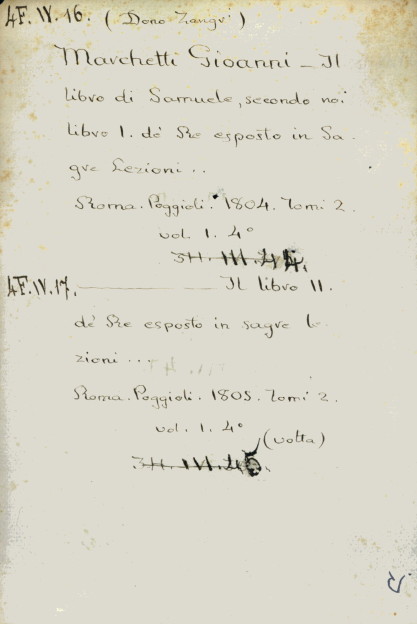 4F.IV.16. (Dono Zangri')
Marchetti Gioanni - Il
libro di Samuele, secondo noi
libro I. de' Re esposto in Sa-
gre Lezioni..
Roma. Poggioli. 1804. Tomi 2.
vol. 1. 4°
3H. III. 44.
4F.IV.17. Il libro II.
de' Re esposto in sagre le
zioni...
Roma. Poggioli. 1805. Tomi 2.
vol. 1. 4°
(volta)
3H. III. 45.